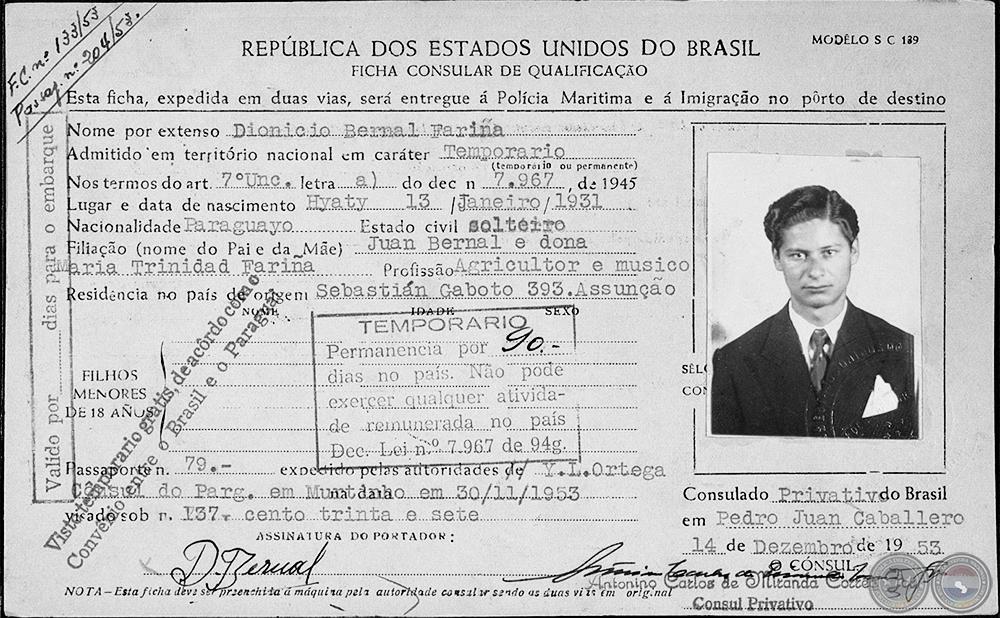 F.C. nº 133/53
Passap. nº 204/53.
REPÚBLICA DOS ESTADOS UNIDOS DO BRASIL
MODÊLO S C 139
FICHA CONSULAR DE QUALIFICAÇÃO
Esta ficha, expedida em duas vias, será entregue á Polícia Maritima e á Imigração no pôrto de destino
Nome por extenso Dionicio Bernal Fariña
Admitido em território nacional em caráter Temporario
(temporário ou permanente)
Nos termos do art. 7ºUnc. letra a) do dec n 7.967, de 1945
Lugar e data de nascimento Hyaty 13 /Janeiro/1931
Nacionalidade Paraguayo Estado civil solteiro
Filiação (nome do Pai e da Mãe) Juan Bernal e dona
Maria Trinidad Fariña Profissão Agricultor e musico
Residência no país de origem Sebastián Gaboto 393.Assunção
NOME IDADE SEXO
FILHOS
MENORES
DE 18 AÑOS
TEMPORARIO
Permanencia por 90.-
dias no país. Não pode
exercer qualquer ativida-
de remunerada no país
Dec. Lei nº 7.967 de 94g.
Valido por dias para o embarque
Visto temporario gratis, de acôrdo com o
Convênio entre o Brasil e o Paraguai
SÊL
CO
Passaporte n. 79.- expedido pelas autoridades de Y.L.Ortega
Consul do Parg. em Mundo Nho em 30/11/1953
visado sob n. 137- cento trinta e sete
ASSINATURA DO PORTADOR:
D. Bernal
Consulado Privativo do Brasil
em Pedro Juan Caballero
14 de Dezembro de 19 53
O CONSUL
Antonino Carlos de Miranda
Consul Privativo
NOTA — Esta ficha deve ser preenchida á máquina pela autoridade consular sendo as duas vias em original
PORTAL GUARANI